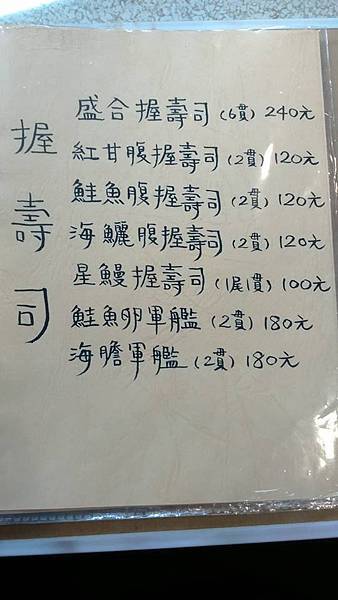 握壽司
盛合握壽司(6貫)240元
紅甘腹握壽司(2貫)120元
鮭魚腹握壽司(2貫)120元
海鱺腹握壽司(2貫)120元
星鰻握壽司(1尾1貫)100元
鮭魚卵軍艦(2貫)180元
海膽軍艦(2貫)180元